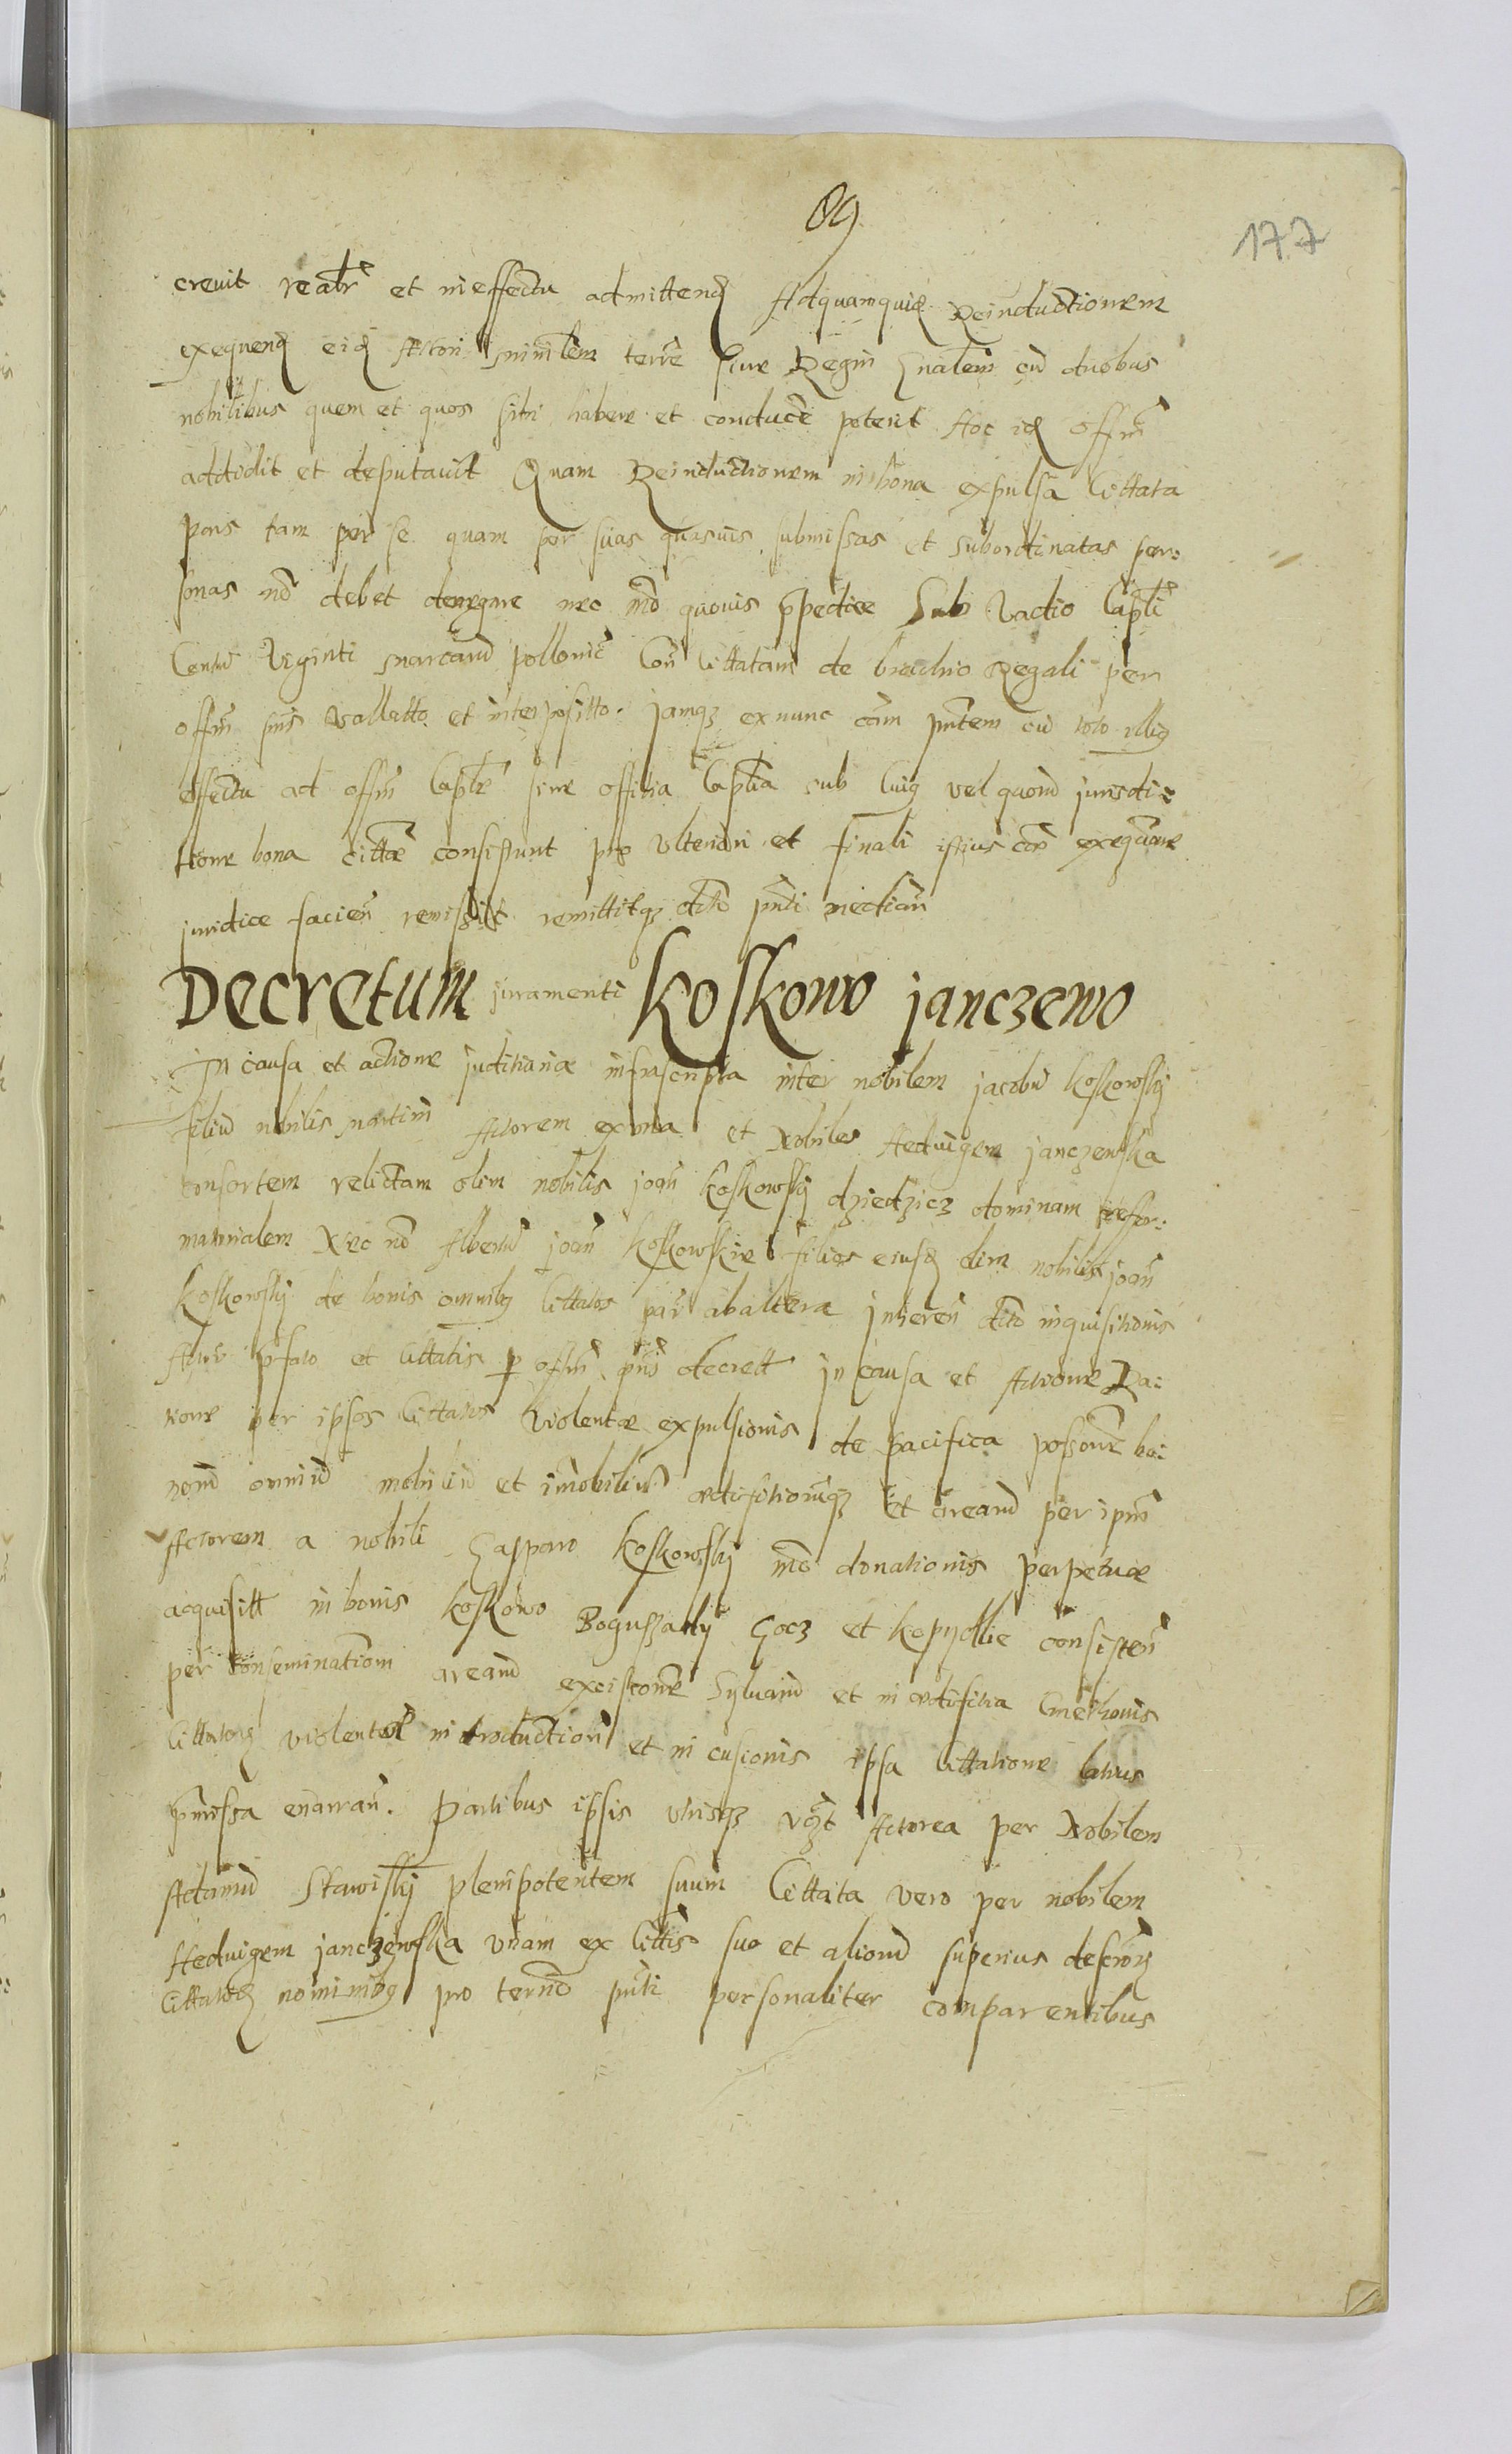 89
177
crevit realr et in effectu admittend Adquamquid Reinductionem
exequend eid Actori minrlem terre sive Regni Gnalem cu duobus
nobilibus quem et quos sibi habere et conduce poterit Hoc id Offm
addidit et deputavit Quam Reinductionem in bona expulsa Cittata
pars tam per se quam per suas quasvis submissas et subordinatas per:
sonas no debet denegare nec mo quovis ppedire Sub vadio Capli
Centu Viginti marcaru pollonic Con Cittatam de brachio Regali per
offm pns vallatto et interpositto. jamqz ex nunc cam pntem cu toto illig
effectu ad offm Caple sive offitia Caplia sub Cuig vel quoru jurisdi:
tione bona cittae consistunt pro Ulteriori et finali istius coa exequone
juridice facien remissit remittitqz dcto pnti median
Decretum juramenti Koskowo janczewo
In causa et actione juditiaria infrascripta inter nobilem jacobu Koskowskij
filiu nobilis martini Actorem ex una et Nobiles Hedvigem janczewska
consortem relictam olim nobilis joan Koskowskij dziedzicz dominam refor:
matrialem Nec no Albertu joan Koskowskie filios eiusd olim nobilis joan
Koskowskij de bonis omnibg Cittatos par ab altera Inheren dcto inquisitionis
Actor pfato et Cittatis p offm pns decrett in causa et Actione Ra:
tione per ipsos Cittatos violentae expulsionis de pacifica possone bo:
noru omniu mobiliu et imobiliu aedifitiorumqz et arearu per ipm
Actorem a nobili Gasparo Koskowskij mo donationis perpetuae
acquisitt in bonis Koskowo Boguszanij Gocz et Kopijdlie consisten
per conseminationem arearu excissione Sylvaru et in aedifitia Cmethonis
Cittatorz violenter introduction et in cusionis ipsa Cittatione latius
pmissa enarran. Partibus ipsis utrisqz vqzt Actorea per Nobilem
Adamu Stawiskij plenipotentem suum Cittata vero per nobilem
Hedvigem janczewska unam ex Cittis suo et alioru superius descrorz
Cittatorz nominibg pro termo pnti personaliter comparentibus